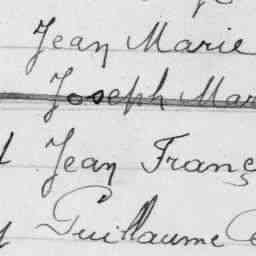 Jean Marie
Joseph Mar
Jean Franç
Guillaume